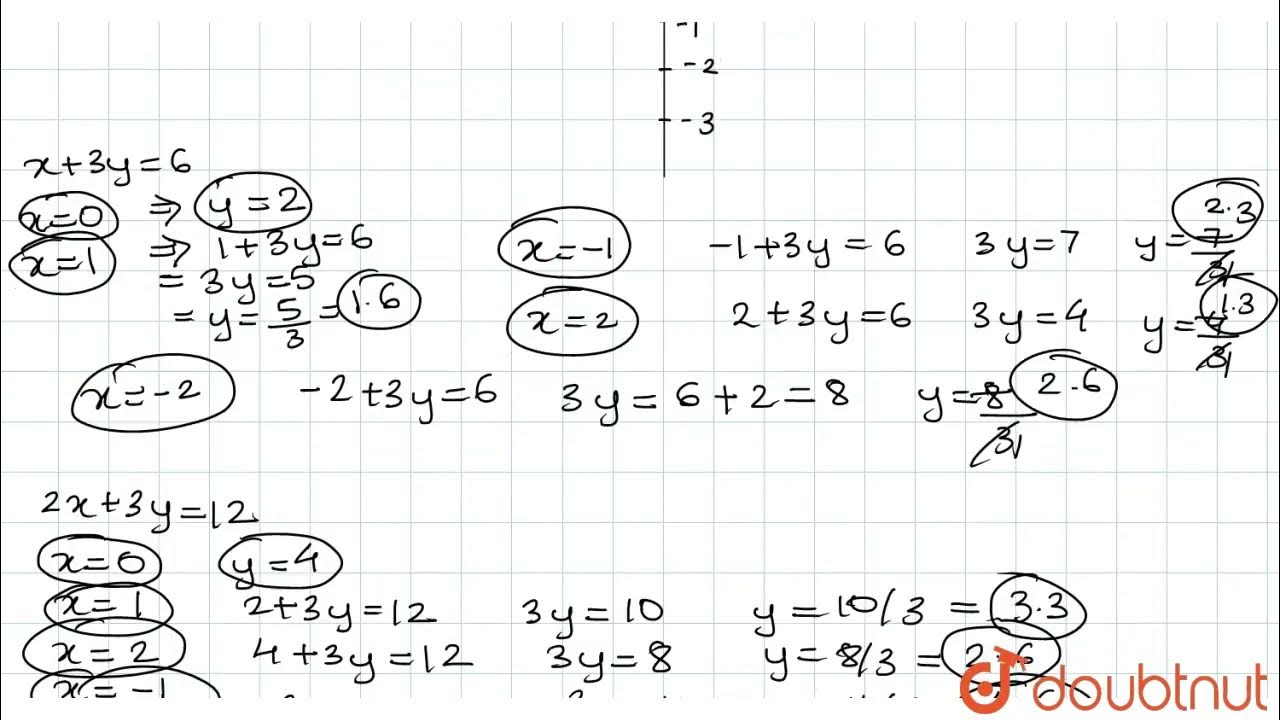 -1
-2
-3
x+3y=6
x=0 ⇒ y=2
x=1 ⇒ 1+3y=6
= 3y=5
= y=5/3=1.6
x=-1 -1+3y=6 3y=7 y=7/3 2.3
x=2 2+3y=6 3y=4 y=4/3 1.3
x=-2 -2+3y=6 3y=6+2=8 y=8/3 2.6
2x+3y=12
x=0 y=4
x=1 2+3y=12 3y=10 y=10/3=3.3
x=2 4+3y=12 3y=8 y=8/3=2.6
x=-1
doubtnut